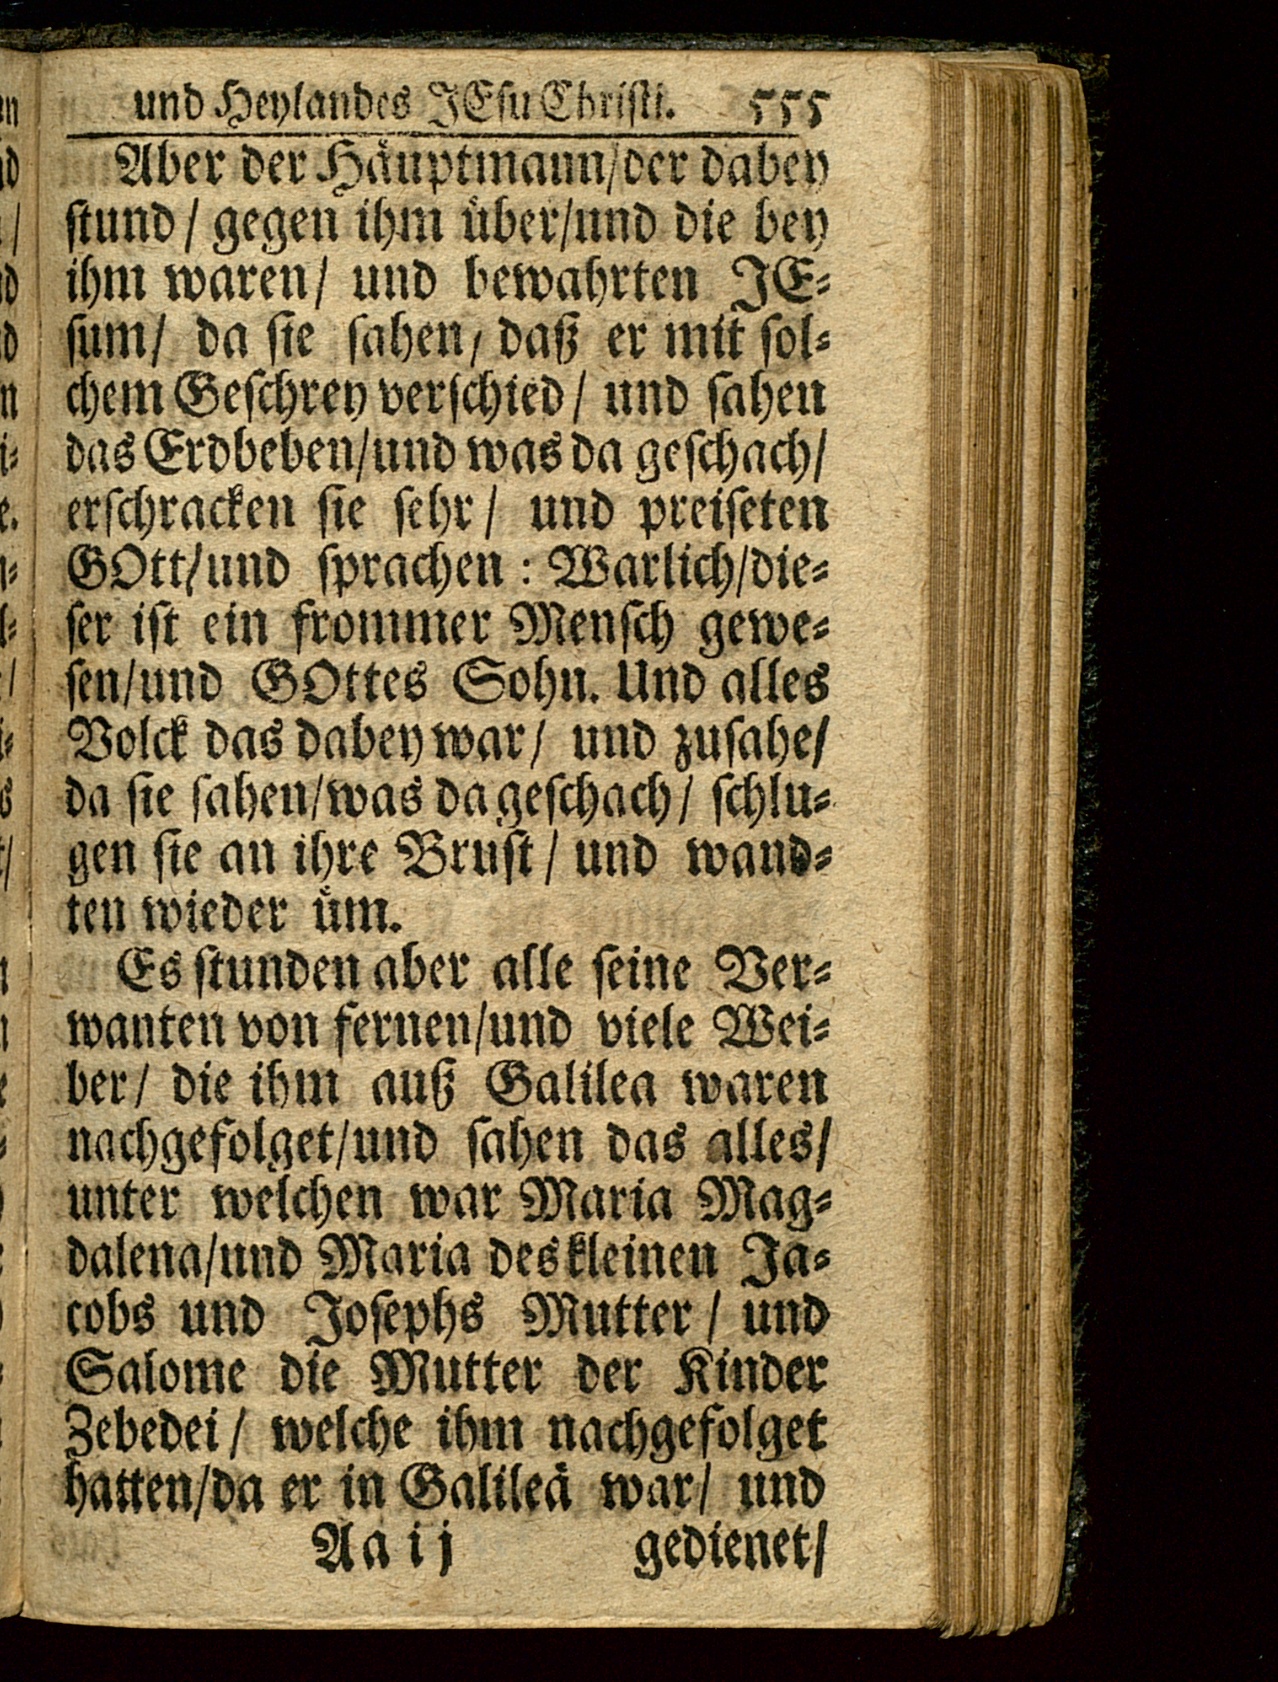 und Heylandes JEsu Christi. 555
Aber der Häuptmann/der dabey
stund / gegen ihm über/und die bey
ihm waren/ und bewahrten JE-
sum/ da sie sahen, daß er mit sol-
chem Geschrey verschied / und sahen
das Erdbeben/und was da geschach/
erschracken sie sehr / und preiseten
GOtt/und sprachen : Warlich/die-
ser ist ein frommer Mensch gewe-
sen/und GOttes Sohn. Und alles
Volck das dabey war/ und zusahe/
da sie sahen/was da geschach/ schlu-
gen sie an ihre Brust / und wand-
ten wieder üm.
Es stunden aber alle seine Ver-
wanten von fernen/und viele Wei-
ber/ die ihm auß Galilea waren
nachgefolget/und sahen das alles/
unter welchen war Maria Mag-
dalena/und Maria des kleinen Ja-
cobs und Josephs Mutter / und
Salome die Mutter der Kinder
Zebedei / welche ihm nachgefolget
hatten/da er in Galileä war/ und
Aa ij gedienet/